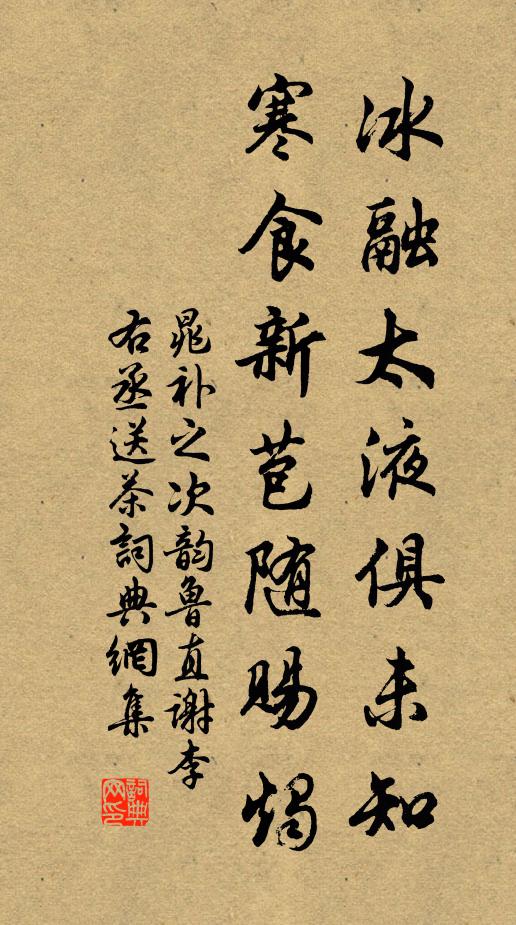 冰融太液俱未知
寒食新芭随賜燭
晁补之次韵魯直谢李
右丞送茶詞典網集
詞典网印